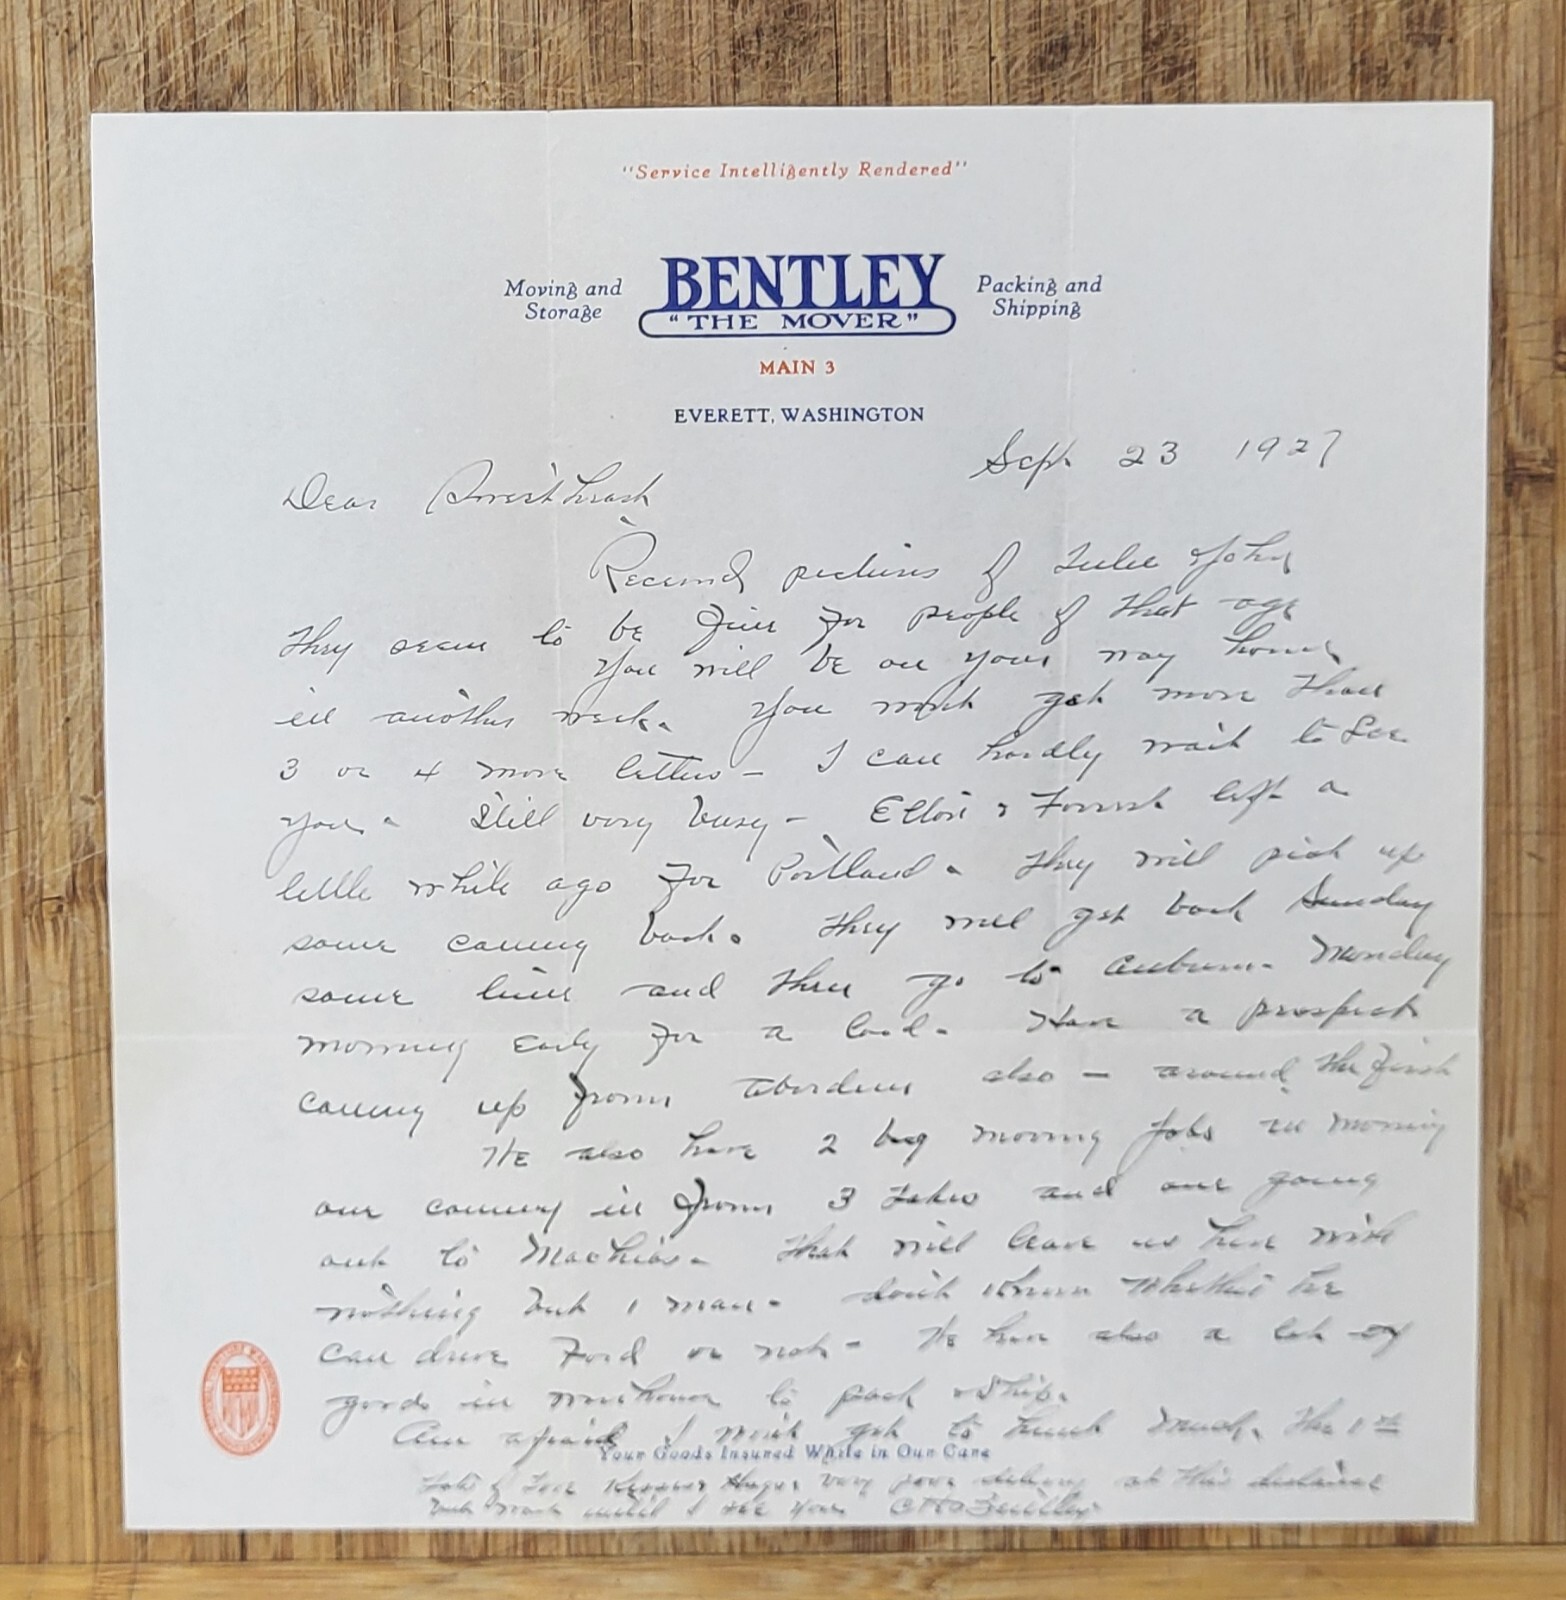 "Service Intelligently Rendered"
Moving and Storage
BENTLEY
"THE MOVER"
Packing and Shipping
MAIN 3
EVERETT, WASHINGTON
Sept 23 1927
Dear Sweetheart
Received pictures of & John
They seem to be fine for people of that age
You will be on your way home
in another week. You wont get more than
3 or 4 more letters – I can hardly wait to see
you. Still very busy – & Forrest left a
little while ago for Portland. They will pick up
some coming back. They will get back Sunday
some time and then go to Auburn Monday
morning early for a load. Have a prospect
coming up from Aberdeen also – around the first
We also have 2 big moving jobs in morning
one coming in from 3 Lakes and one going
out to Machias. That will leave us here with
nothing but 1 man. dont know whether he
can drive Ford or not – We have also a lot of
goods in warehouse to pack & ship.
Am afraid I wont get to hunt much. The 1st
Your Goods Insured While in Our Care
Lots of Love Kisses Hugs very poor delivery at this distance
but wait until I see you CHBentley